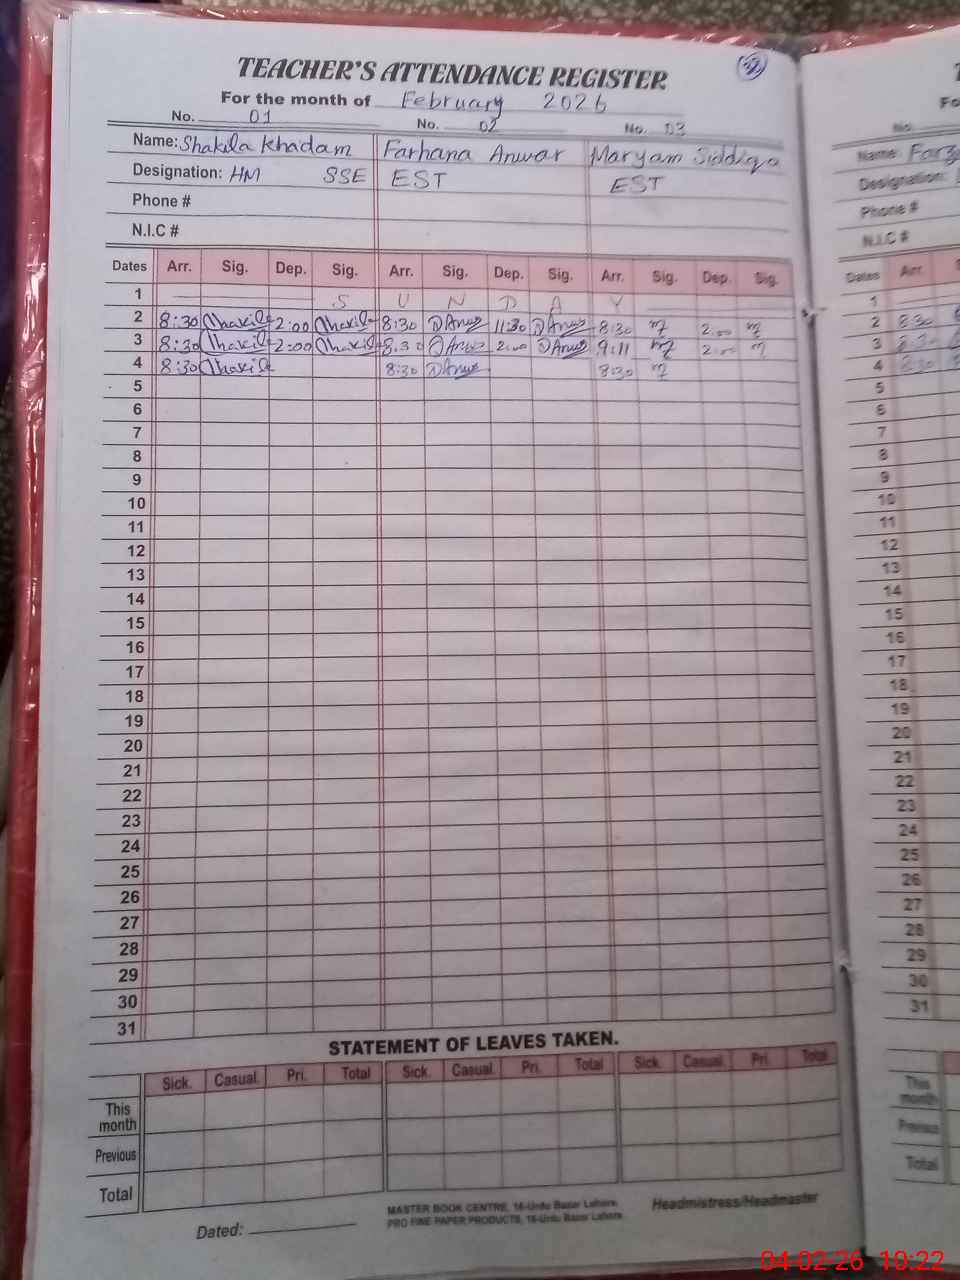 TEACHER'S ATTENDANCE REGISTER
For the month of February 2026
No. 01 No. 02 No. 03
Name: Shakila Khadam Farhana Anwar Maryam Siddiqa
Designation: HM SSE EST EST
Phone #
N.I.C #
Dates Arr. Sig. Dep. Sig. Arr. Sig. Dep. Sig. Arr. Sig. Dep. Sig.
1 S U N D A Y
2 8:30 Shakila 2:00 Shakila 8:30 Anwar 11:30 Anwar 8:30 2:00
3 8:30 Shakila 2:00 Shakila 8:30 Anwar 2:00 Anwar 9:11 2:00
4 8:30 Shakila 8:30 Anwar 8:30
5
6
7
8
9
10
11
12
13
14
15
16
17
18
19
20
21
22
23
24
25
26
27
28
29
30
31
STATEMENT OF LEAVES TAKEN.
Sick. Casual. Pri. Total Sick. Casual. Pri. Total Sick. Casual. Pri. Total
This month
Previous
Total
Dated:
MASTER BOOK CENTRE, 16-Urdu Bazar Lahore.
PRO FINE PAPER PRODUCTS, 16-Urdu Bazar Lahore.
Headmistress/Headmaster
No.
Name:
Designation:
Phone #
N.I.C #
Dates Arr.
1
2 8:30
3 8:30
4 8:30
5
6
7
8
9
10
11
12
13
14
15
16
17
18
19
20
21
22
23
24
25
26
27
28
29
30
31
This month
Previous
Total
04-02-26 10:22